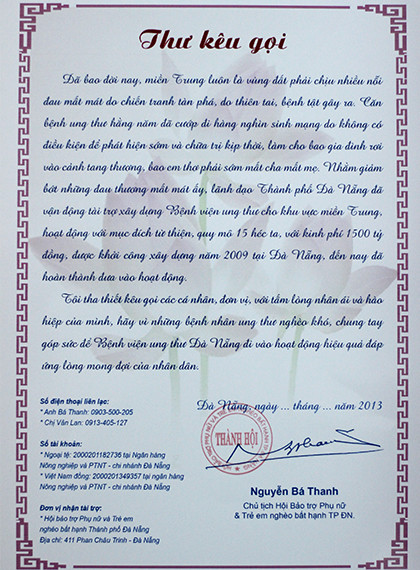 Thư kêu gọi
Đã bao đời nay, miền Trung luôn là vùng đất phải chịu nhiều nỗi
đau mất mát do chiến tranh tàn phá, do thiên tai, bệnh tật gây ra. Căn
bệnh ung thư hằng năm đã cướp đi hàng nghìn sinh mạng do không có
điều kiện để phát hiện sớm và chữa trị kịp thời, làm cho bao gia đình rơi
vào cảnh tang thương, bao em thơ phải sớm mất cha mất mẹ. Nhằm giảm
bớt những đau thương mất mát ấy, lãnh đạo Thành phố Đà Nẵng đã
vận động tài trợ xây dựng Bệnh viện ung thư cho khu vực miền Trung,
hoạt động với mục đích từ thiện, quy mô 15 héc ta, với kinh phí 1500 tỷ
đồng, được khởi công xây dựng năm 2009 tại Đà Nẵng, đến nay đã
hoàn thành đưa vào hoạt động.
Tôi tha thiết kêu gọi các cá nhân, đơn vị, với tấm lòng nhân ái và hào
hiệp của mình, hãy vì những bệnh nhân ung thư nghèo khó, chung tay
góp sức để Bệnh viện ung thư Đà Nẵng đi vào hoạt động hiệu quả đáp
ứng lòng mong đợi của nhân dân.
Đà Nẵng, ngày ... tháng ... năm 2013
Số điện thoại liên lạc:
* Anh Bá Thanh: 0903-500-205
* Chị Vân Lan: 0913-405-127
Số tài khoản:
* Ngoại tệ: 2000201182736 tại Ngân hàng
Nông nghiệp và PTNT - chi nhánh Đà Nẵng
* Việt Nam đồng: 2000201349357 tại ngân hàng
Nông nghiệp và PTNT - chi nhánh Đà Nẵng
Đơn vị nhận tài trợ:
* Hội bảo trợ Phụ nữ và Trẻ em
nghèo bất hạnh Thành phố Đà Nẵng
Địa chỉ: 411 Phan Châu Trinh - Đà Nẵng
THÀNH HỘI
Nguyễn Bá Thanh
Chủ tịch Hội Bảo trợ Phụ nữ
& Trẻ em nghèo bất hạnh TP ĐN.